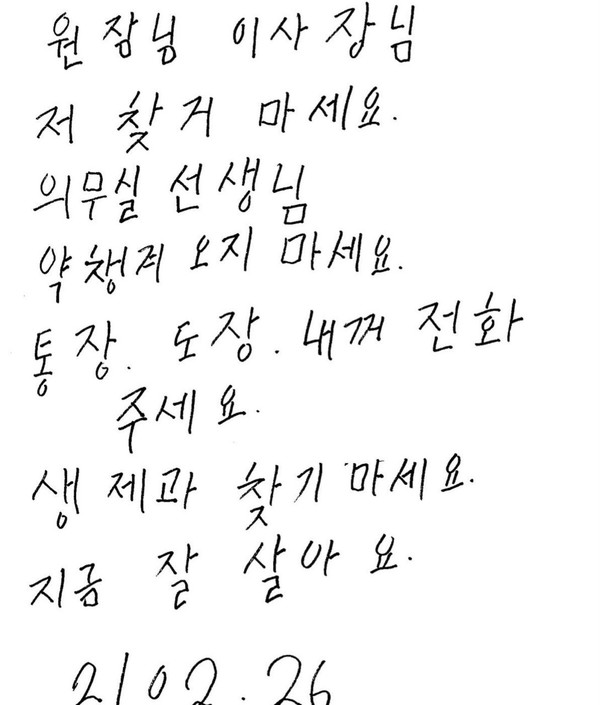 원장님 이사장님
저 찾거 마세요.
의무실 선생님
약챙겨 오지 마세요.
통장. 도장. 내꺼 전화
주세요.
생제과 찾기 마세요.
지금 잘 살아요.
2102.26